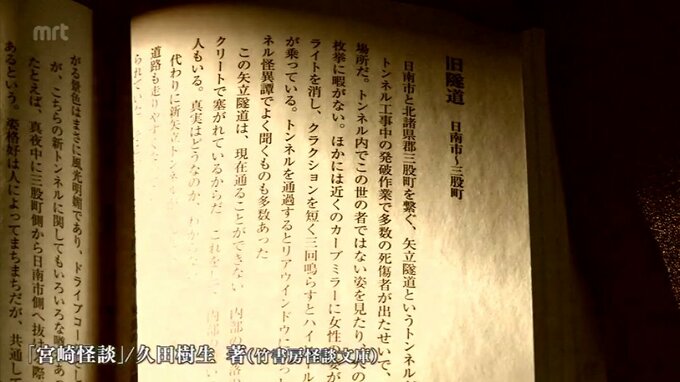 mrt
旧隧道　日南市～三股町
日南市と北諸県郡三股町を繋ぐ、矢立隧道というトンネルが
トンネル工事中の発破作業で多数の死傷者が出たせいで、
場所だ。トンネル内でこの世の者ではない姿を見たり、
枚挙に暇がない。ほかには近くのカーブミラーに女性の姿が
ライトを消し、クラクションを短く三回鳴らすとハイ
が乗っている。トンネルを通過するとリアウインドウに
ネル怪異譚でよく聞くものも多数あった
この矢立隧道は、現在通ることができない
クリートで塞がれているからだ
人もいる。真実はどうなのか、
代わりに新矢立トンネル
道路も走りやすく
がる景色はまさに風光明媚であり、ドライブコー
が、こちらの新トンネルに関してもいろいろな噂
たとえば、真夜中に三股町側から日南市側へ抜
あるという。姿格好は人によってまちまちだが、共通して
「宮崎怪談」/久田樹生 著(竹書房怪談文庫)